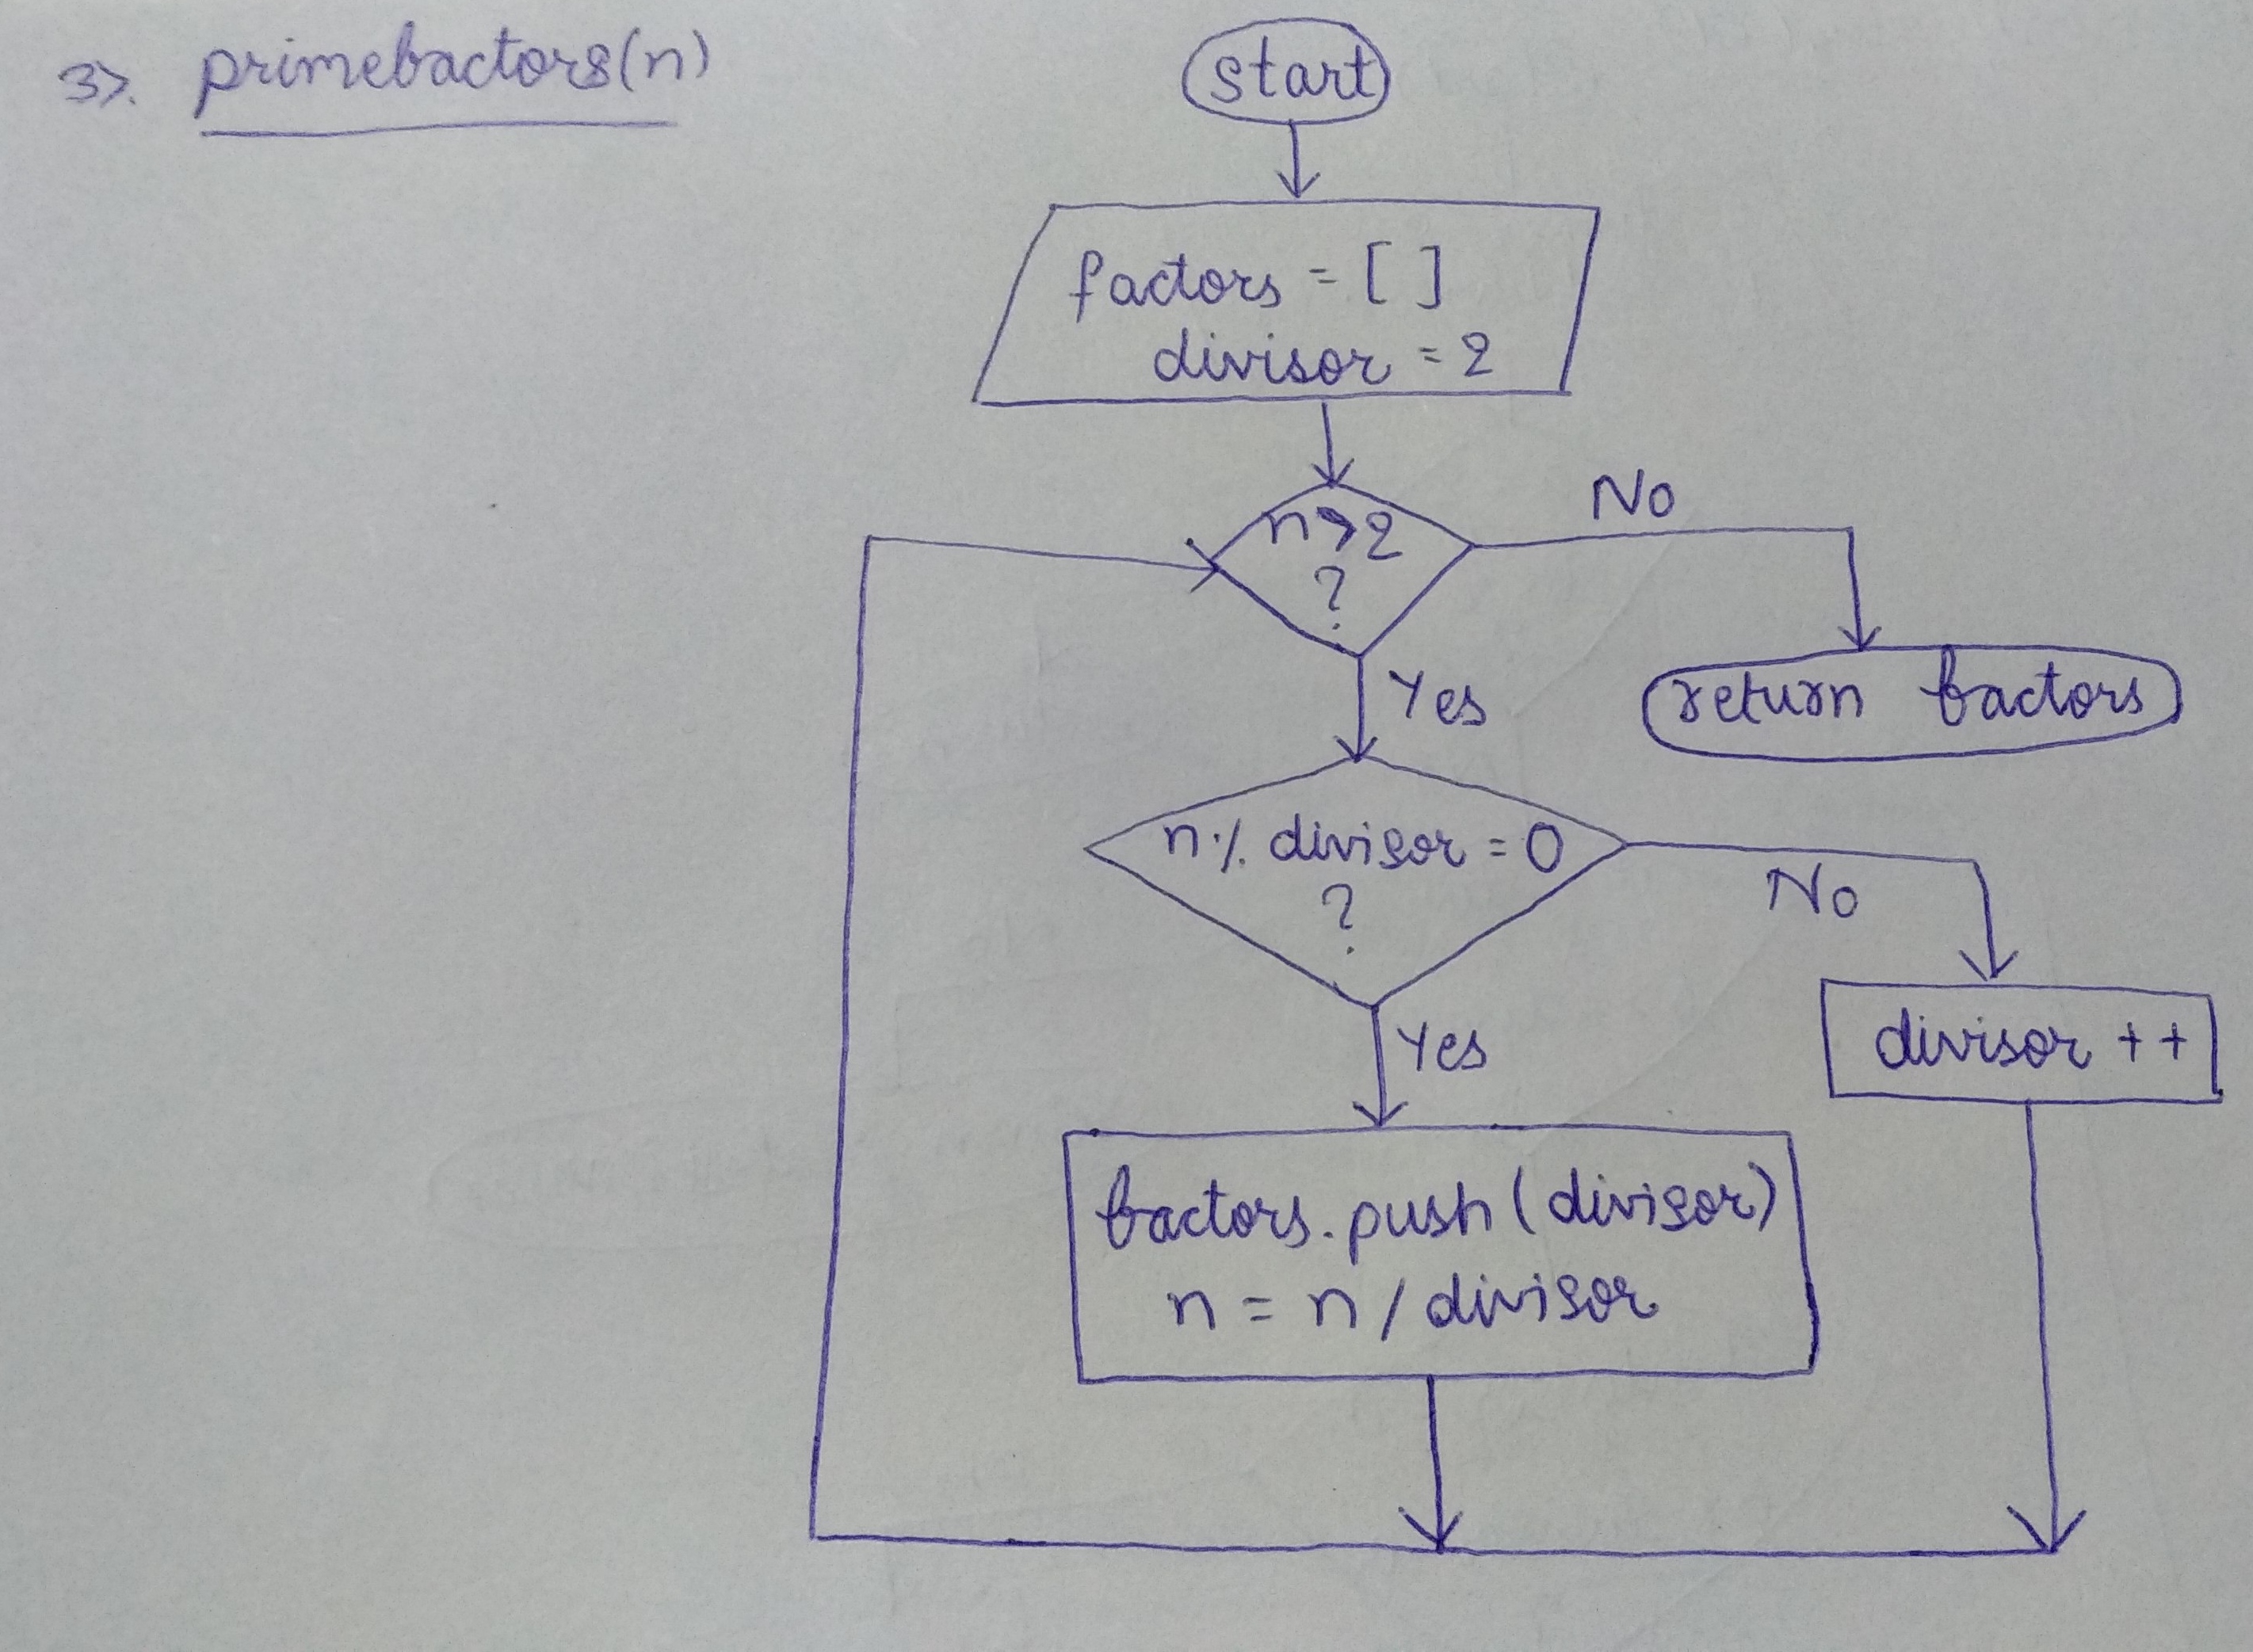 3>. primefactors(n)
start
factors = [ ]
divisor = 2
n>2
?
No
Yes
return factors
n % divisor = 0
?
No
Yes
divisor ++
factors.push(divisor)
n = n / divisor